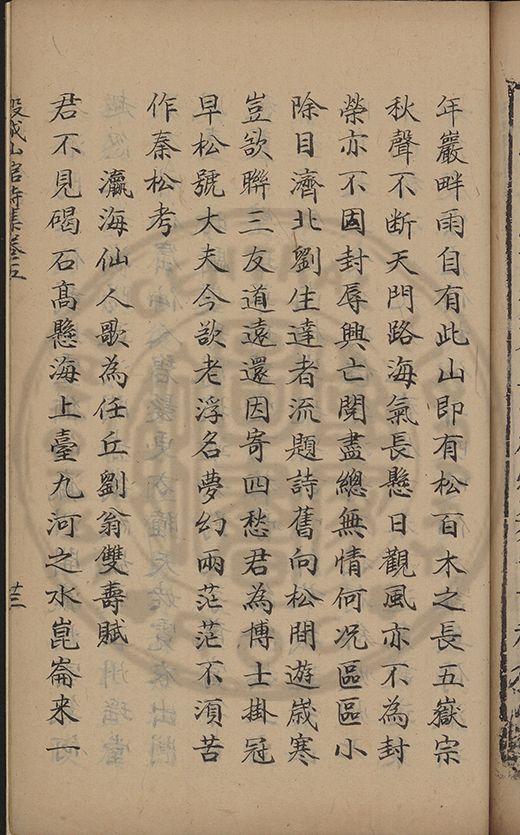 年巖畔雨自有此山即有松百木之長五嶽宗
秋聲不断天門路海氣長懸日觀風亦不為封
榮亦不因封辱興亡閱盡總無情何况區區小
除目濟北劉生達者流題詩舊向松間遊歲寒
豈欲聯三友道遠還因寄四愁君為博士掛冠
早松號大夫今欲老浮名夢幻兩茫茫不須苦
作秦松考
瀛海仙人歌為任丘劉翁雙壽賦
君不見碣石髙懸海上臺九河之水崑崙来一
穀城山館詩集卷五
廿三